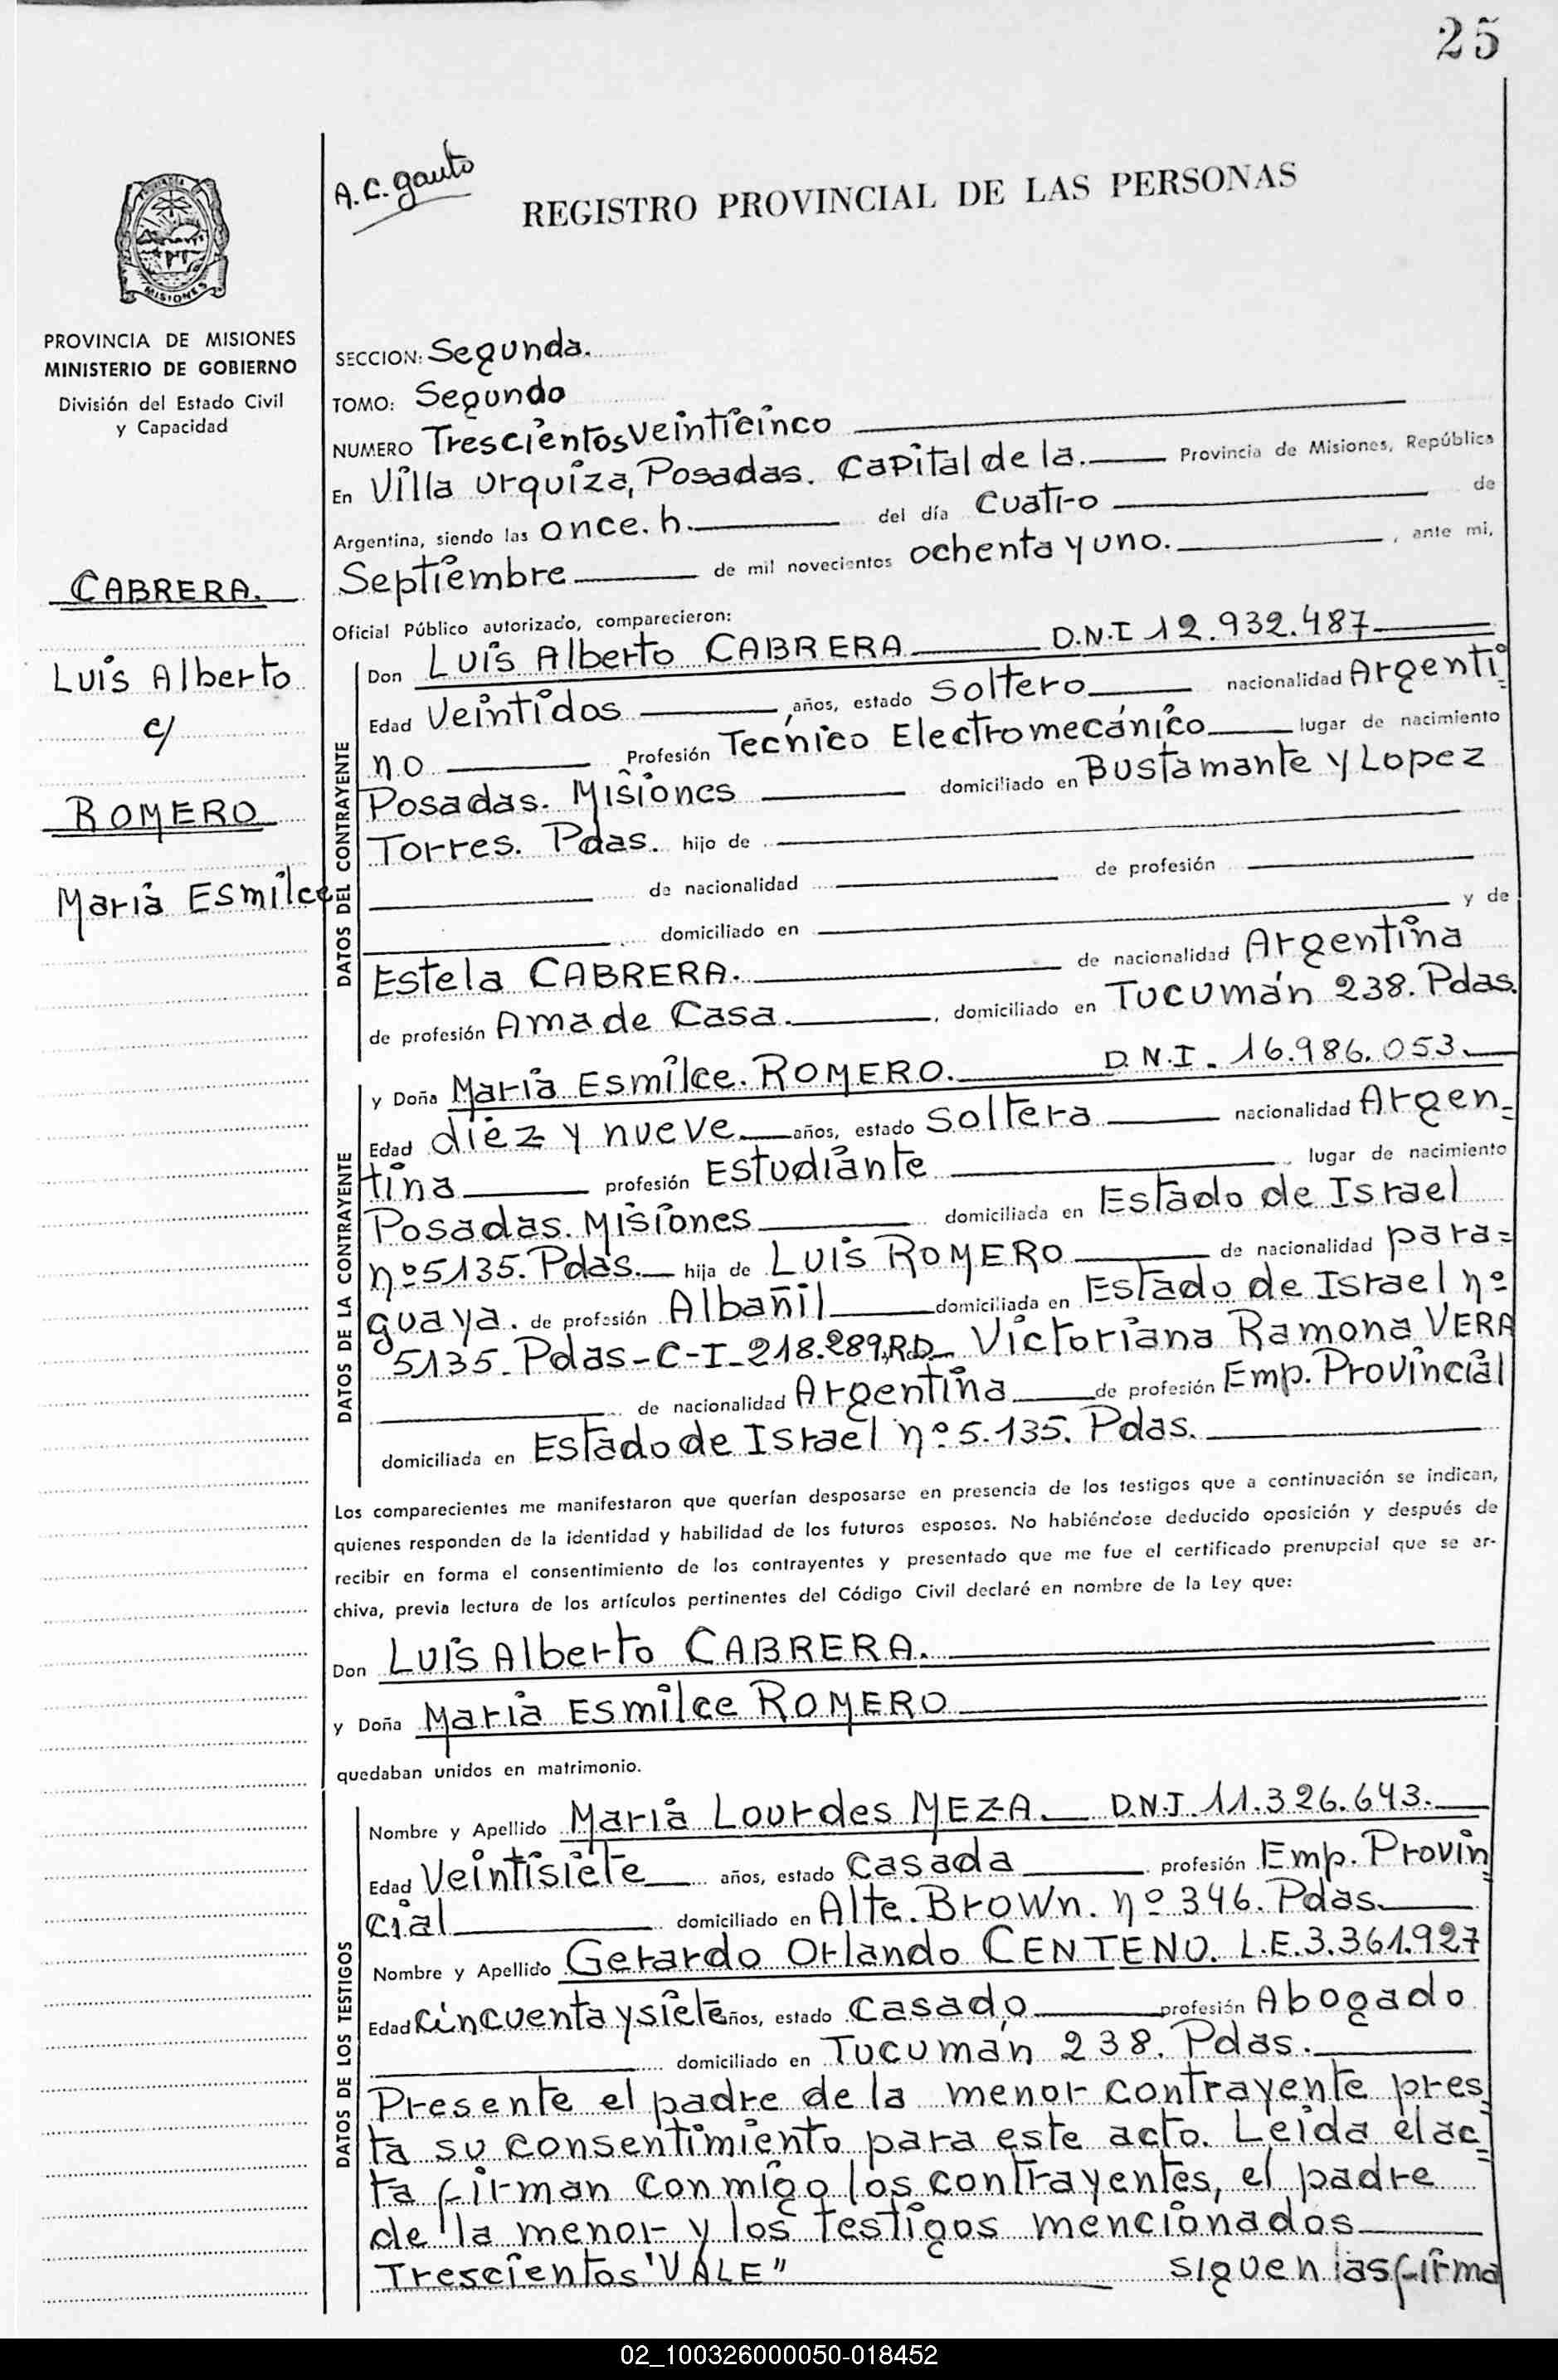 25
A.C. Gauto
REGISTRO PROVINCIAL DE LAS PERSONAS
MISIONES
PROVINCIA DE MISIONES
MINISTERIO DE GOBIERNO
División del Estado Civil
y Capacidad
CABRERA.
Luis Alberto
c/
ROMERO
Maria Esmilce
SECCION: Segunda.
TOMO: Segundo
NUMERO Trescientos Veinticinco
En Villa Urquiza, Posadas. Capital de la. Provincia de Misiones, República
Argentina, siendo las once. h. del día Cuatro de
Septiembre de mil novecientos ochenta y uno. , ante mi,
Oficial Público autorizado, comparecieron:
DATOS DEL CONTRAYENTE
Don Luis Alberto CABRERA D.N.I 12.932.487
Edad Veintidos años, estado Soltero nacionalidad Argenti=
no Profesión Tecnico Electromecánico lugar de nacimiento
Posadas. Misiones domiciliado en Bustamante y Lopez
Torres. Pdas. hijo de
de nacionalidad de profesión
domiciliado en y de
Estela CABRERA. de nacionalidad Argentina
de profesión Ama de Casa. , domiciliado en Tucumán 238. Pdas.
DATOS DE LA CONTRAYENTE
y Doña Maria Esmilce. ROMERO. D.N.I. 16.986.053.
Edad diez y nueve años, estado Soltera nacionalidad Argen=
tina profesión Estudiante lugar de nacimiento
Posadas. Misiones domiciliada en Estado de Israel
nº 5135. Pdas. hija de Luis ROMERO de nacionalidad para=
guaya. de profesión Albañil domiciliada en Estado de Israel nº
5135. Pdas - C-I-218.289.R.D. Victoriana Ramona VERA
de nacionalidad Argentina de profesión Emp. Provincial
domiciliada en Estado de Israel nº 5.135. Pdas.
Los comparecientes me manifestaron que querían desposarse en presencia de los testigos que a continuación se indican,
quienes responden de la identidad y habilidad de los futuros esposos. No habiéndose deducido oposición y después de
recibir en forma el consentimiento de los contrayentes y presentado que me fue el certificado prenupcial que se ar-
chiva, previa lectura de los artículos pertinentes del Código Civil declaré en nombre de la Ley que:
Don Luis Alberto CABRERA.
y Doña Maria Esmilce ROMERO
quedaban unidos en matrimonio.
DATOS DE LOS TESTIGOS
Nombre y Apellido Maria Lourdes MEZA. D.N.I. 11.326.643.
Edad Veintisiete años, estado Casada profesión Emp. Provin=
cial domiciliado en Alte. Brown. nº 346. Pdas.
Nombre y Apellido Gerardo Orlando CENTENO. L.E. 3.361.927
Edad Cincuenta y siete años, estado Casado profesión Abogado
domiciliado en Tucumán 238. Pdas.
Presente el padre de la menor contrayente pres=
ta su consentimiento para este acto. Leida el ac=
ta firman conmigo los contrayentes, el padre
de la menor y los testigos mencionados
Trescientos "VALE" siguen las firma
02_100326000050-018452